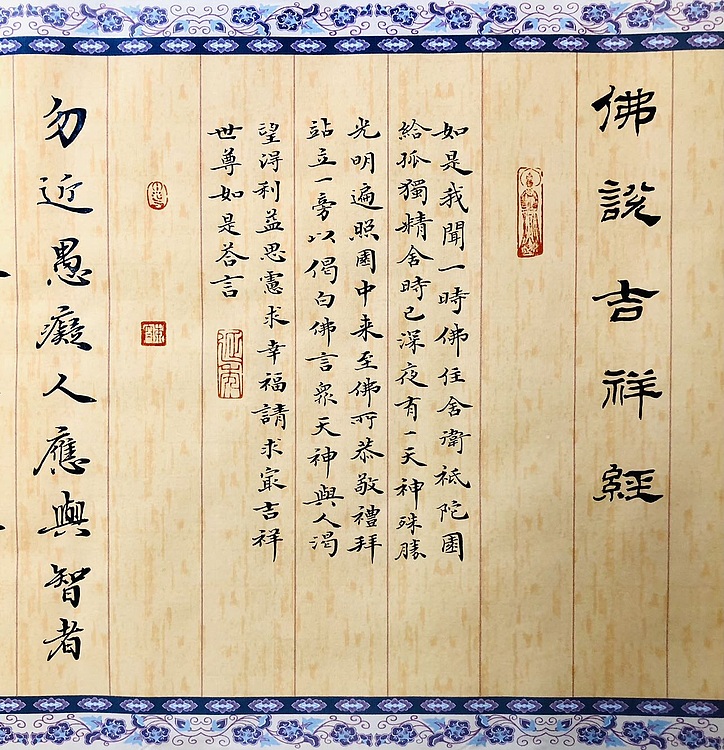 佛說吉祥經
如是我聞一時佛住舍衛祗陀園
給孤獨精舍時已深夜有一天神殊勝
光明遍照園中来至佛所恭敬禮拜
站立一旁以偈白佛言眾天神與人渴
望得利益思慮求幸福請求冣吉祥
世尊如是荅言
勿近愚癡人應與智者